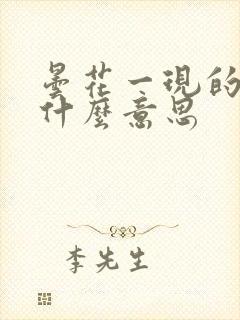 曇花一現的
什麼意思
李先生